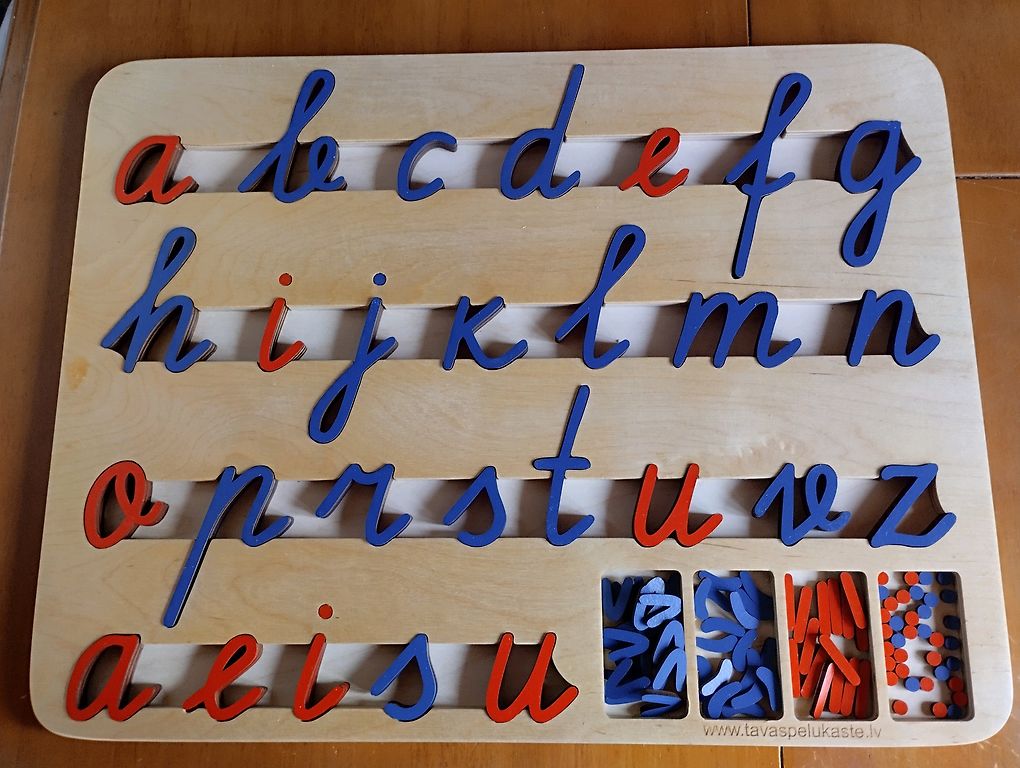 a b c d e f g
h i j k l m n
o p r s t u v z
a e i s u
www.tavaspelukaste.lv